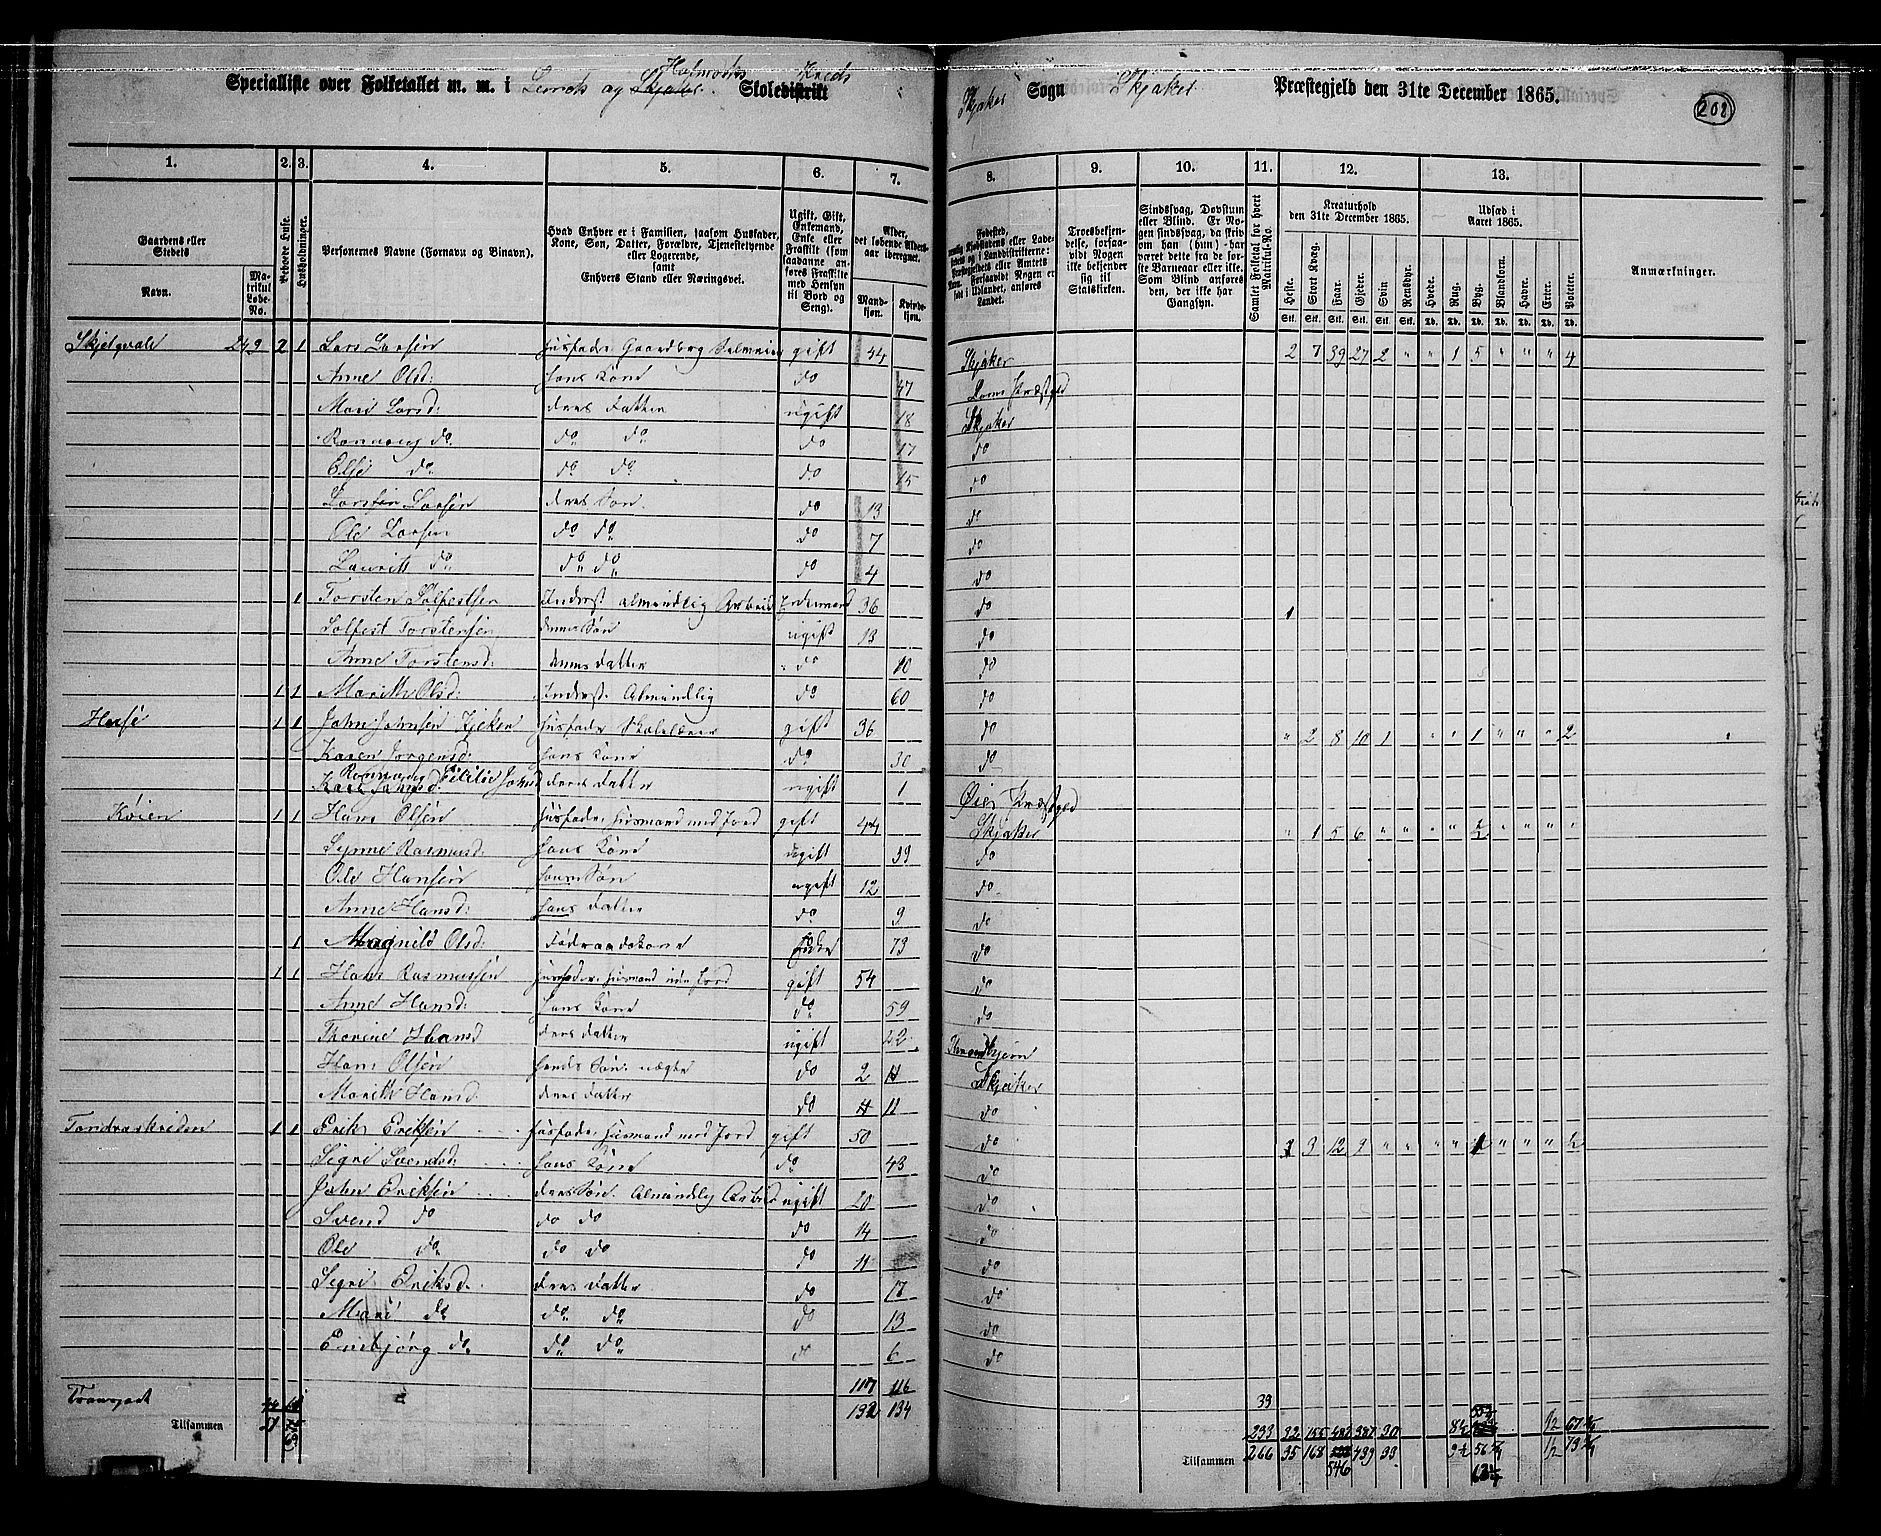 Specialliste over Folketallet m. m. i Lunds og Skjåks Holmoens Skoledistrikt Kreds
Skjaker Sogn Skjaker Præstegjeld den 31te December 1865.
208
1. 2. 3. 4. 5. 6. 7. 8. 9. 10. 11. 12. 13.
Gaardens eller Stedets Navn.
Matrikul Løbe-No.
Beboede Huse.
Husholdninger.
Personernes Navne (Fornavn og Binavn).
Hvad Enhver er i Familien, saasom Husfader, Kone, Søn, Datter, Forældre, Tjenestetyende eller Logerende, samt Enhvers Stand eller Næringsvei.
Ugift, Gift, Enkemand, Enke eller Fraskilt (som saadanne anføres Fraskilte med Hensyn til Bord og Seng).
Alder, det løbende Aldersaar iberegnet.
Mandkjøn. Kvindekjøn.
Troesbekjendelse, forsaavidt Nogen ikke bekjender sig til Statskirken.
Sindssvag, Døvstum eller Blind. Er Nogen sindssvag, da skrives om han (hun) har været dette fra de første Barneaar eller ikke. Som Blind anføres den, der ikke har Gangsyn.
Samlet Folketal for hvert Matrikul-No.
Kreaturhold den 31te December 1865.
Heste. Stort Kvæg. Faar. Gjeder. Svin. Rensdyr.
Udsæd i Aaret 1865.
Hvede. Rug. Byg. Blandkorn. Havre. Erter. Poteter.
Anmærkninger.
Skjelqvale 249 2 1 Lars Larsen Husfader Gaardbrg Selveier gift 44 Skjaker 2 7 39 27 2 " " 1 5 " " " 4
Anne Olsd: hans Kone do 47 Lom Præstgjd
Mari Larsd: deres Datter ugift 18 Skjaker
Ronnaug do do do do 17 do
Else do do do do 15 do
Torsten Larsen deres Søn do 13 do
Ole Larsen do do do 7 do
Laurits do do do do 4 do
1 Torsten Solfestsen Inderst almindlig Arbeid Enkemand 36 do 1
Solfest Torstensen hans Søn ugift 13 do
Anne Torstensd: hans Datter do 10 do
1 1 Marith Olsd: Inderst Almindlig do 60 do
Huse 1 1 John Johnsen Kjeken Husfader Skolelærer gift 36 do " 2 8 10 1 " " 1 " " " 2
Karen Jørgensd hans Kone do 30 do
Ronnaug Cicilie Johnsd deres Datter ugift 1 Øier Præstgjeld
Køien 1 1 Hans Olsen Husfader Husmand med Jord gift 44 Skjaker " 1 5 6 " " " " ½ " " " "
Synne Rasmusd: hans Kone gift 39 do
Ole Hansen hans Søn ugift 12 do
Anne Hansd: hans Datter do 9 do
1 Magnild Olsd: Føderaadskone Enke 73 do
1 1 Hans Rasmussen Husfader Husmand uden Jord gift 54 do
Anne Hansd: hans Kone do 59 do
Thorine Hansd deres Datter ugift 22
Hans Olsen hendes Søn uægte do 2 Skjaker
Marith Hansd: deres Datter do 11 do
Tondvaskriden 1 1 Erik Eriksen Husfader Husmand med Jord gift 50 do 1 3 12 9 " " " " 1 " " " ½
Sigri Svendsd: hans Kone do 43 do
John Eriksen deres Søn. Almindelig Arbeid ugift 20 do
Svend do do do do 14 do
Ole do do do do 11 do
Sigri Eriksd. deres Datter do 17 do
Mari do do do do 13 do
Embjørg do do do do 6 do
117 116
Transport 192 134 39
Tilsammen
233 32 155
Tilsammen 266 35 168 439 33
546